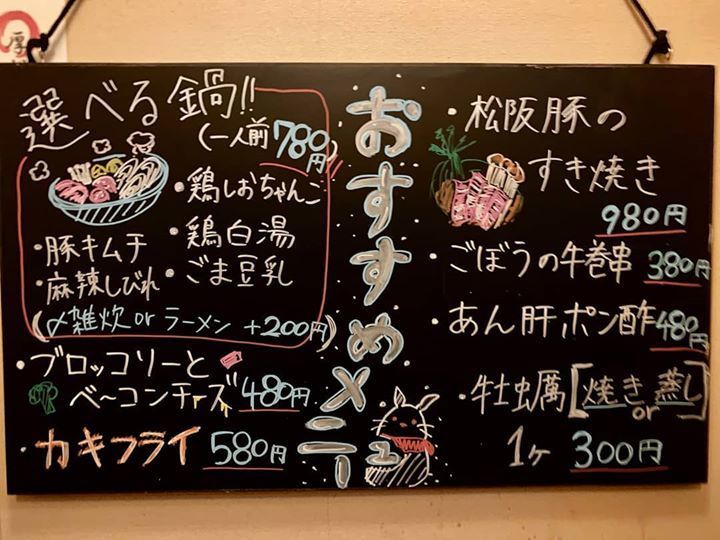 厚
選べる鍋!!
(一人前780円)
・鶏しおちゃんこ
・鶏白湯
・ごま豆乳
・豚キムチ
・麻辣しびれ
(〆雑炊orラーメン +200円)
・ブロッコリーと
ベ〜コンチーズ 480円
・カキフライ 580円
おすすめメニュー
・松阪豚の
すき焼き
980円
・ごぼうの牛巻串 380円
・あん肝ポン酢 480円
・牡蛎[焼き or 蒸し]
1ヶ 300円